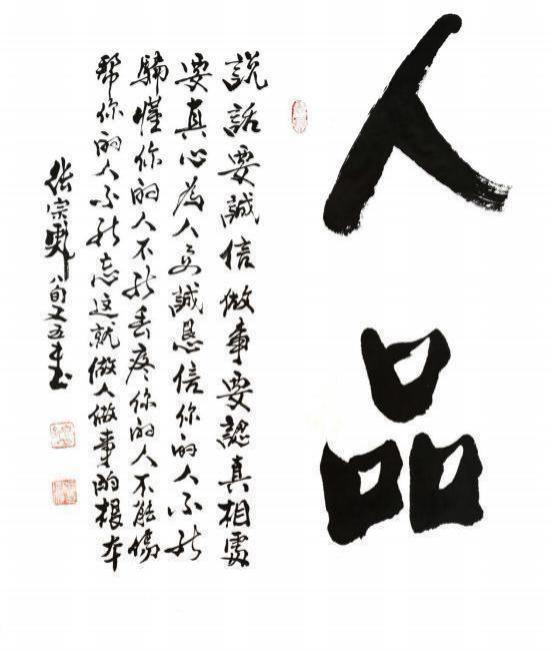 人品
說話要誠信做事要認真相處
要真心為人要誠恳信你的人不能
騙懂你的人不能丢疼你的人不能傷
帮你的人不能忘這就做人做事的根本
张宗 八旬又五書